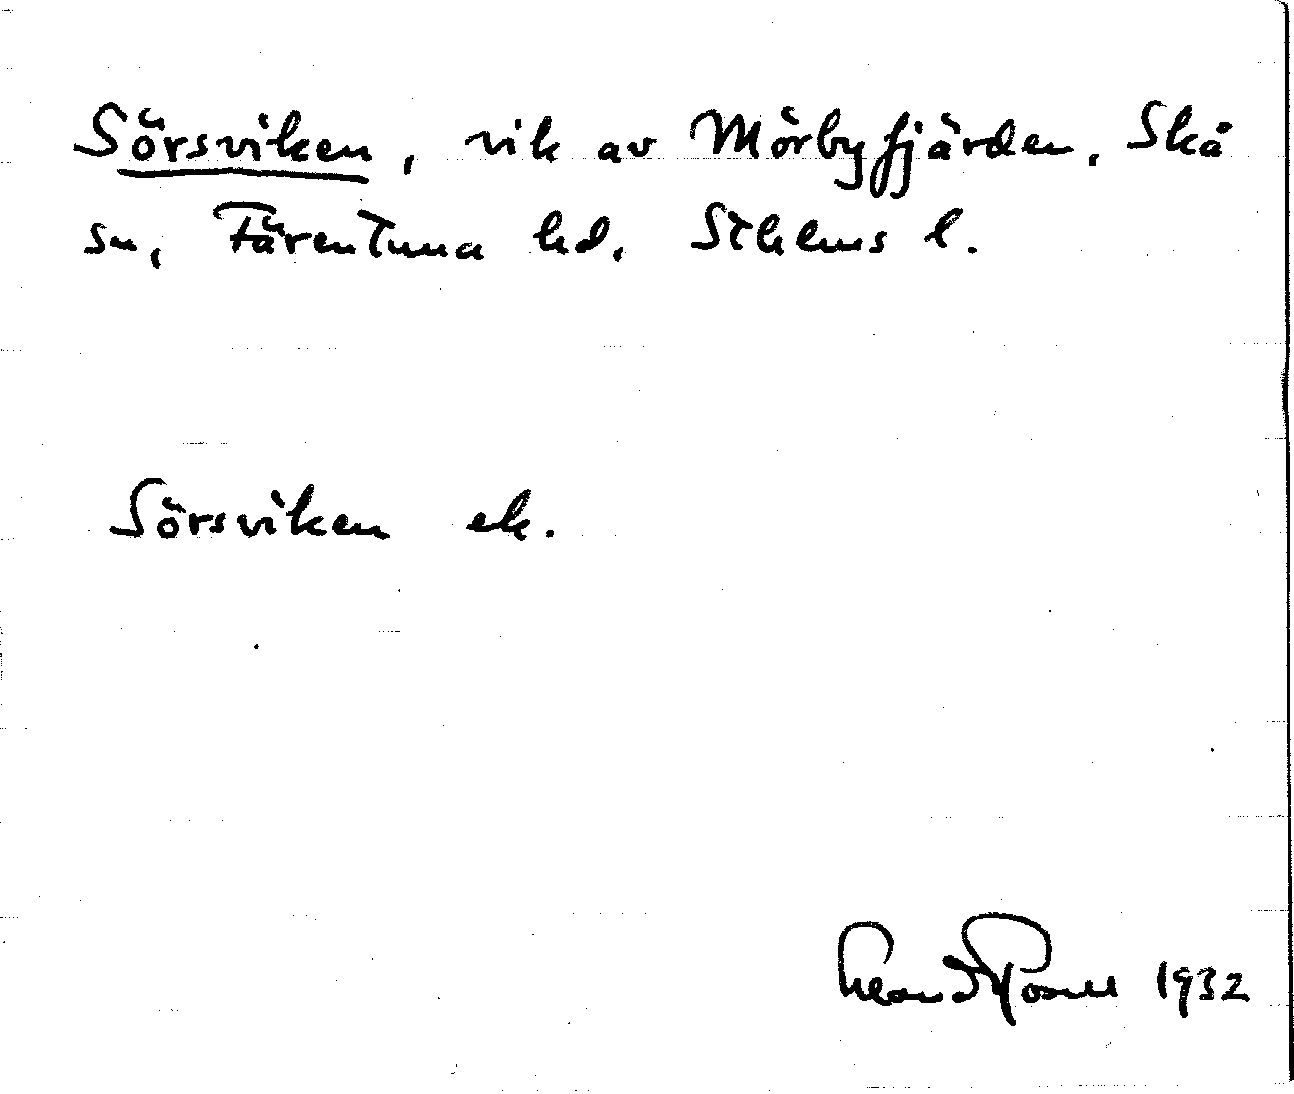 Sörsviken, vik av Mörbyfjärden, Skå
sn, Färentuna hd, Sthlms l.
Sörsviken ek.
1932